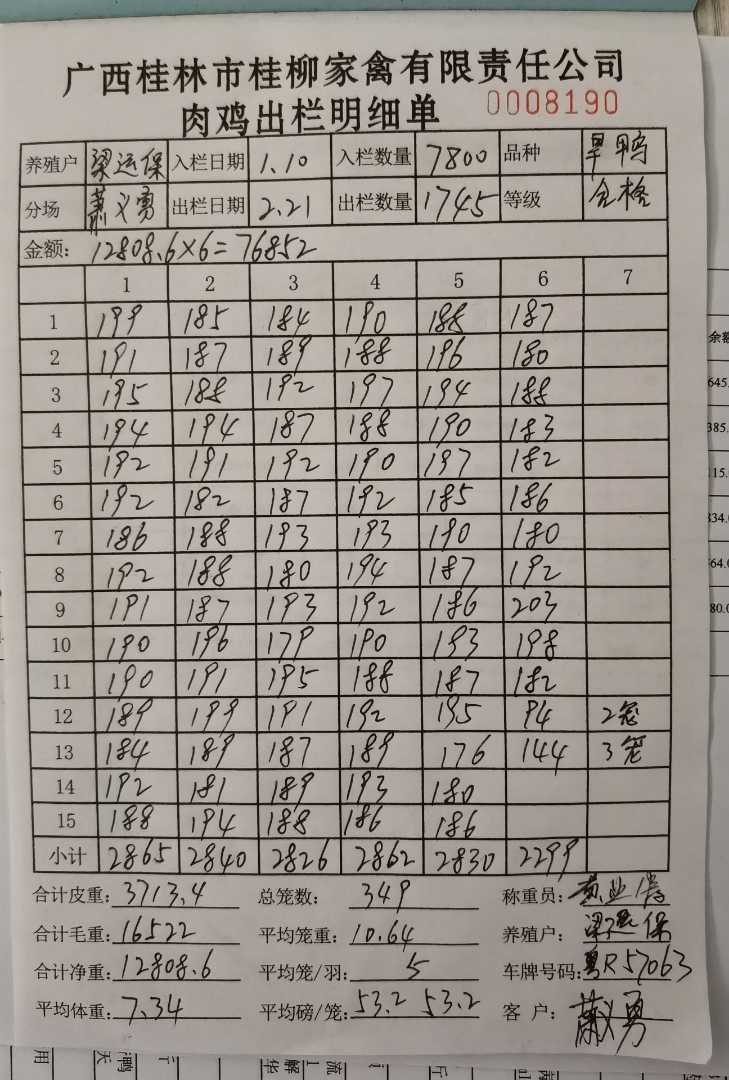 广西桂林市桂柳家禽有限责任公司
肉鸡出栏明细单 0008190
养殖户 梁运保 入栏日期 1.10 入栏数量 7800 品种 旱鸭
分场 萧义勇 出栏日期 2.21 出栏数量 1745 等级 合格
金额: 12808.6×6=76852
1 2 3 4 5 6 7
1 199 185 184 190 188 187
2 191 187 189 188 196 180
3 195 188 192 197 194 188
4 194 194 187 188 190 183
5 192 191 192 190 197 182
6 192 182 187 192 185 186
7 186 188 193 193 190 180
8 192 188 180 194 187 192
9 191 187 193 192 186 203
10 190 196 179 190 193 198
11 190 191 195 188 187 182
12 189 199 191 192 195 94 2笼
13 184 189 187 189 176 144 3笼
14 192 181 189 193 180
15 188 194 188 186 186
小计 2865 2840 2826 2862 2830 2299
合计皮重: 3713.4 总笼数: 349 称重员:
合计毛重: 16522 平均笼重: 10.64 养殖户: 梁运保
合计净重: 12808.6 平均笼/羽: 5 车牌号码: 粤R57063
平均体重: 7.34 平均磅/笼: 53.2 53.2 客户: 萧义勇
余额
645.
385.
115.
834.
764.
80.0